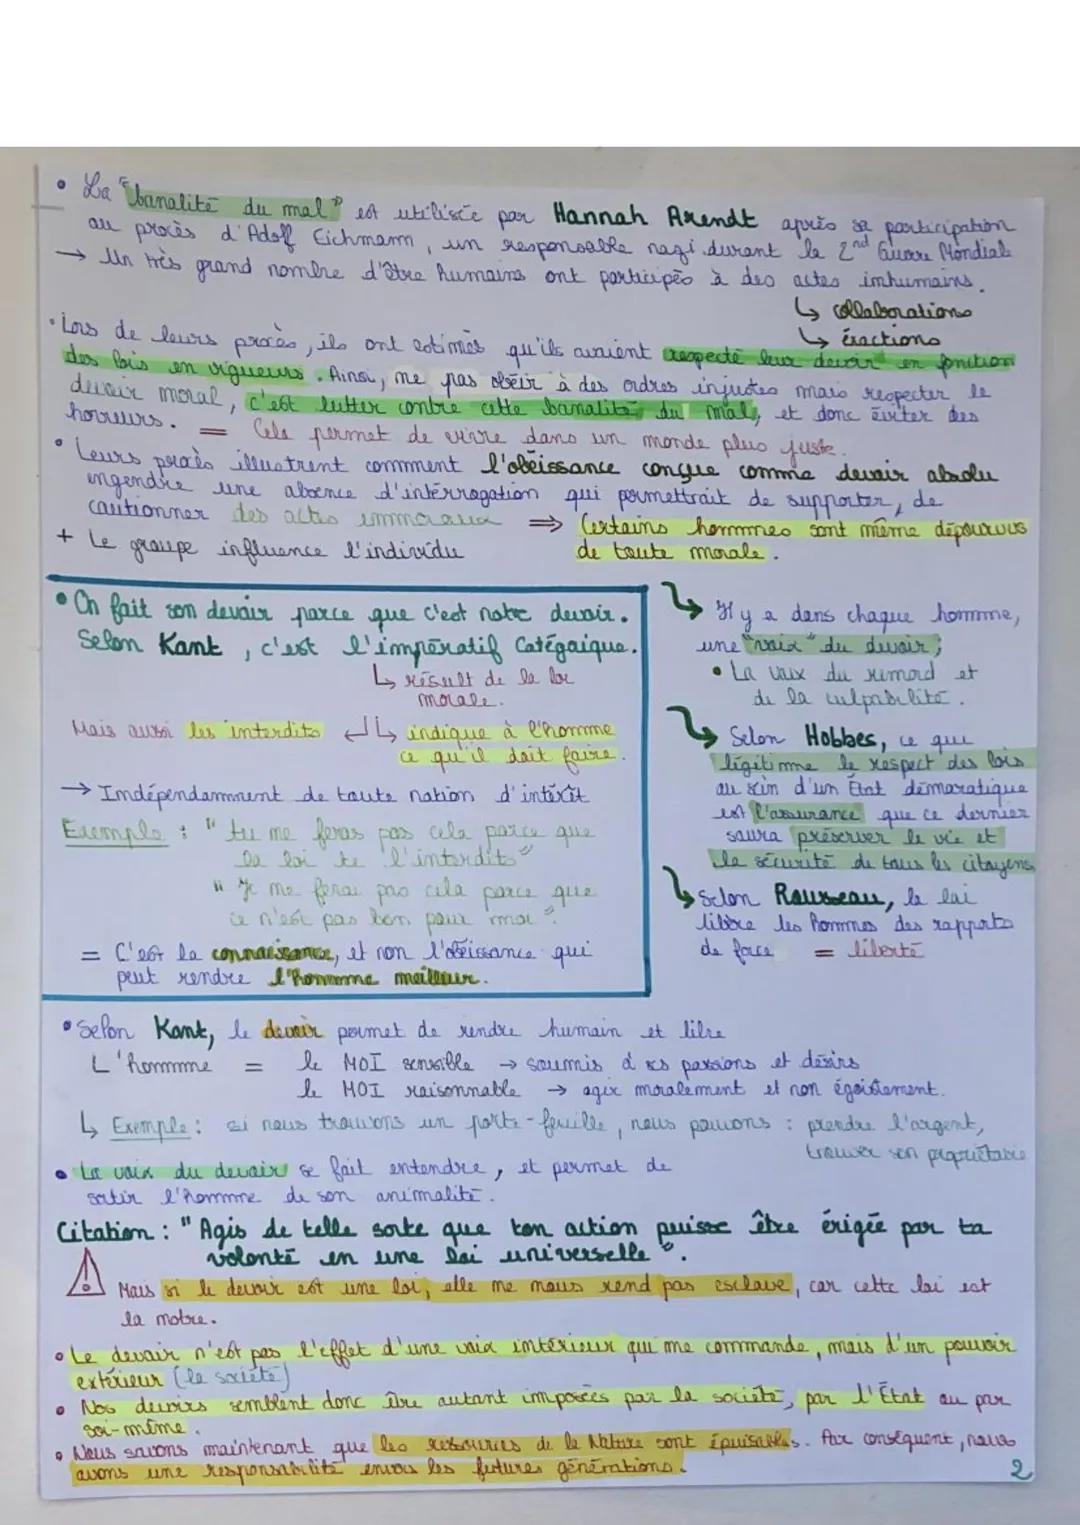 • La "banalité du mal" est utilisée par Hannah Arendt après sa participation
au procès d'Adolf Eichmann, un responsable nazi durant la 2nd Guerre Mondiale
→ Un très grand nombre d'être humains ont participés à des actes inhumains.
↳ collaborations
↳ éractions
• Lors de leurs procès, ils ont estimés qu'ils avaient respecté leur devoir en fonition
des lois en vigueurs. Ainsi, ne pas obéir à des ordres injustes mais respecter le
devoir moral, c'est lutter contre cette banalité du mal, et donc éviter des
horreurs. = Cela permet de vivre dans un monde plus juste.
• Leurs procès illustrent comment l'obéissance conçue comme devoir absolu
engendre une absence d'intérrogation qui permettrait de supporter, de
cautionner des actes immoraux ⇒ Certains hommes sont même dépourvus
de toute morale.
+ Le groupe influence l'individu
• On fait son devoir parce que c'est notre devoir.
Selon Kant, c'est l'impératif Catégorique.
↳ résult de la loi
morale.
Mais aussi les interdits ↲ ↳ indique à l'homme
ce qu'il doit faire.
→ Indépendamment de toute notion d'intérêt
Exemple : "tu ne feras pas cela parce que
la loi te l'interdits"
"Je ne ferai pas cela parce que
ce n'est pas bon pour moi".
= C'est la connaissance, et non l'obéissance qui
peut rendre l'homme meilleur.
↳ Il y a dans chaque homme,
une "voix" du devoir;
• La voix du remord et
de la culpabilité.
↳ Selon Hobbes, ce qui
légitimme le respect des lois
au sein d'un État démocratique
est l'assurance que ce dernier
saura préserver le vie et
la sécurité de tous les citoyens
↳ Selon Rousseau, la loi
libère les hommes des rapports
de force = liberté
• Selon Kant, le devoir permet de rendre humain et libre
L'homme = le MOI sensible → soumis à ses passions et désirs
le MOI raisonnable → agir moralement et non égoïstement.
↳ Exemple : si nous trouvons un porte-feuille, nous pouvons : prendre l'argent,
trouver son propriétaire
• La voix du devoir se fait entendre, et permet de
sortir l'homme de son animalité.
Citation : "Agis de telle sorte que ton action puisse être érigée par ta
volonté en une loi universelle".
⚠ Mais si le devoir est une loi, elle ne nous rend pas esclave, car cette loi est
la notre.
• Le devoir n'est pas l'effet d'une voix intérieur qui me commande, mais d'un pouvoir
extérieur (la société)
• Nos devoirs semblent donc être autant imposées par la société, par l'État ou par
soi-même.
• Nous savons maintenant que les ressources de la Nature sont épuisables. Par conséquent, nous
avons une responsabilité envers les futures générations.
2